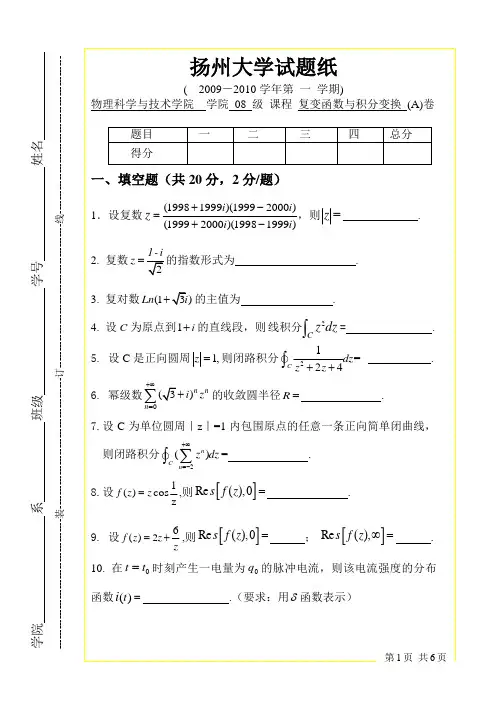 扬州大学试题纸
( 2009－2010学年第 一 学期)
物理科学与技术学院 学院 08 级 课程 复变函数与积分变换 (A)卷
题目 一 二 三 四 总分
得分
一、填空题（共20分，2分/题）
1．设复数 z = (1998+1999i)(1999−2000i) / (1999+2000i)(1998−1999i)，则 |z| = .
2. 复数 z = (1-i)/√2 的指数形式为 .
3. 复对数 Ln(1+√3i) 的主值为 .
4. 设 C 为原点到 1+i 的直线段，则 线积分 ∫_C z²dz = .
5. 设 C 是正向圆周 |z|=1, 则闭路积分 ∮_C 1/(z²+2z+4) dz= .
6. 幂级数 ∑_{n=0}^{+∞} (√3+i)^n z^n 的收敛圆半径 R = .
7. 设 C 为单位圆周｜z｜=1 内包围原点的任意一条正向简单闭曲线，
则闭路积分 ∮_C (∑_{n=−2}^{+∞} z^n)dz = .
8. 设 f(z) = z cos 1/z ,则 Re s[f(z),0] = .
9. 设 f(z) = 2z + 6/z ,则 Re s[f(z),0] = ； Re s[f(z),∞] = .
10. 在 t = t₀ 时刻产生一电量为 q₀ 的脉冲电流，则该电流强度的分布
函数 i(t) = .(要求：用 δ 函数表示)
第 1 页 共 6 页
学院 系 班级 学号 姓名
装 订 线